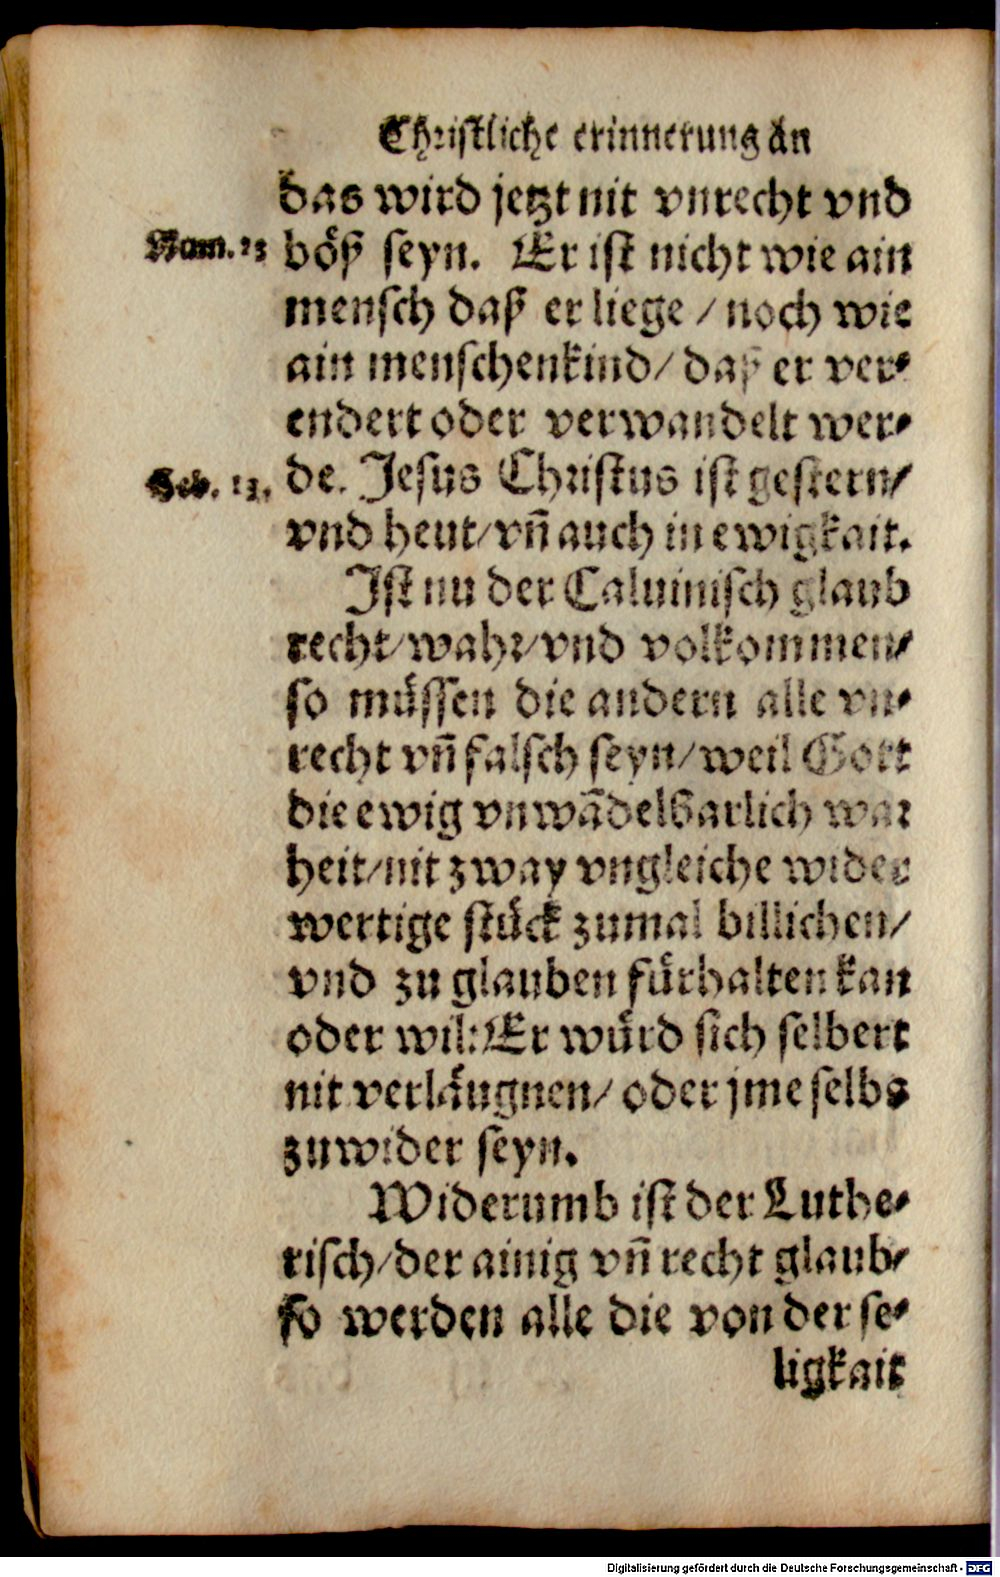 Christliche erinnerung an
das wird jetzt nit vnrecht vnd
Num. 23 böß seyn. Er ist nicht wie ain
mensch daß er liege / noch wie
ain menschenkind/ daß er ver⸗
endert oder verwandelt wer⸗
Heb. 13. de. Jesus Christus ist gestern/
vnd heut/vñ auch in ewigkait.
Ist nu der Caluinisch glaub
recht/wahr/vnd volkommen/
so müssen die andern alle vn⸗
recht vñ falsch seyn/weil Gott
die ewig vnwãdelbarlich war
heit/nit zway vngleiche wider
wertige stück zumal billichen/
vnd zu glauben fürhalten kan
oder wil: Er würd sich selbert
nit verläugnen/ oder jme selbs
zuwider seyn.
Widerumb ist der Luthe⸗
risch/der ainig vñ recht glaub/
so werden alle die von der se⸗
ligkait
Digitalisierung gefördert durch die Deutsche Forschungsgemeinschaft - DFG